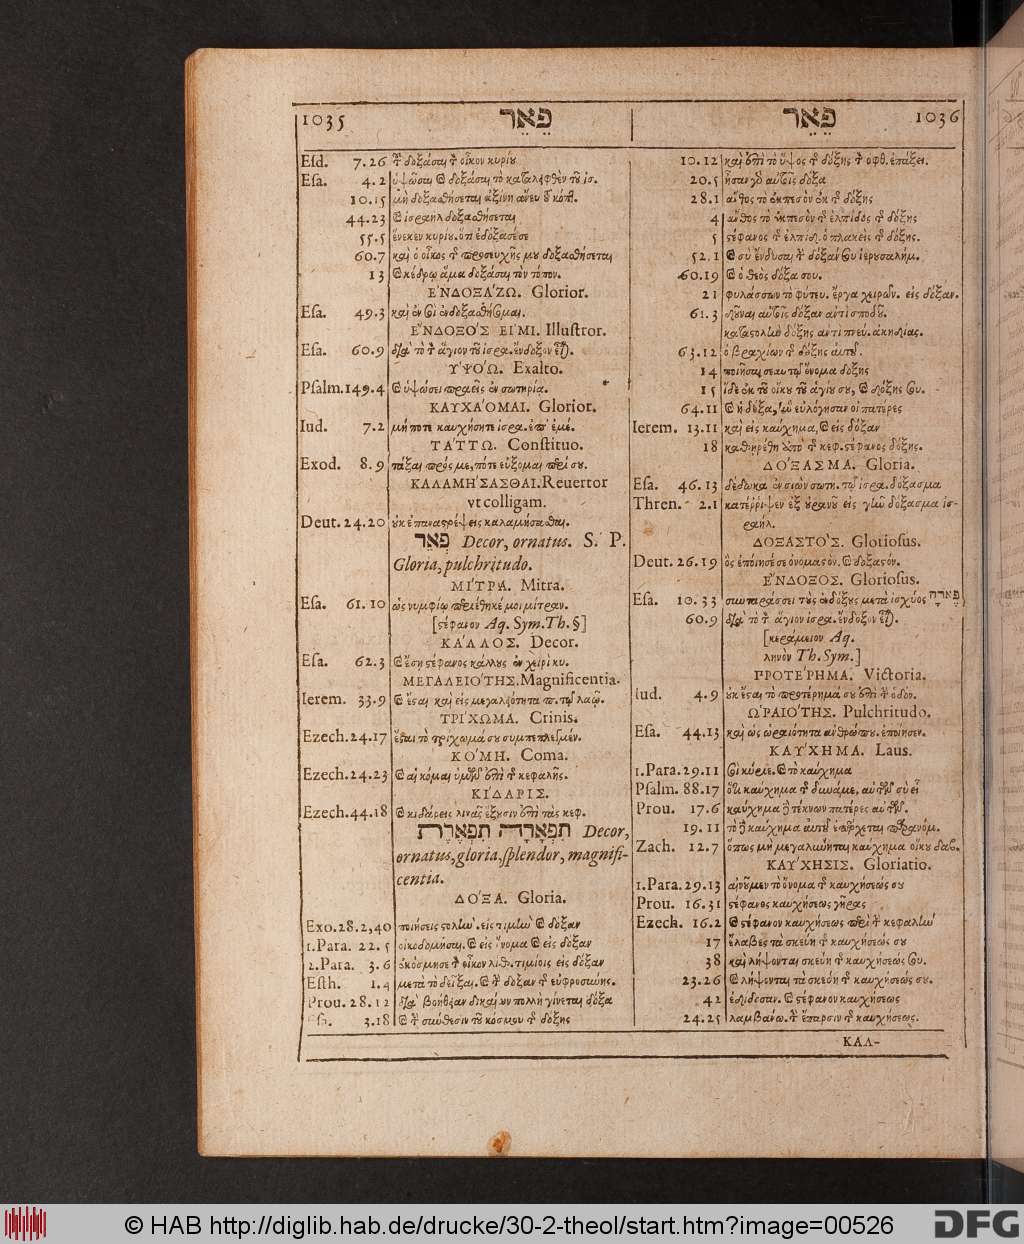 1035 פְּאֵר
פְּאֵר 1036
Esd. 7.26 τ δοξάσαι τ οἶκον κυρίου
Esa. 4.2 ὑψῶσαι καὶ δοξάσαι τὸ καταλειφθὲν τοῦ ἰσ.
10.15 μὴ δοξασθήσεται ἀξίνη ἄνευ τοῦ κόπτ.
44.23 καὶ ἰσραὴλ δοξασθήσεται
55.5 ἕνεκεν κυρίου. ὅτι ἐδόξασέ σε
60.7 καὶ ὁ οἶκος τῆς προσευχῆς μου δοξασθήσεται
13 καὶ κέδρῳ ἅμα δοξάσαι τὸν τόπον.
ἘΝΔΟΞΆΖΩ. Glorior.
Esa. 49.3 καὶ ἐν σοὶ ἐνδοξασθήσομαι.
ἜΝΔΟΞΌΣ ΕἸΜΙ. Illustror.
Esa. 60.9 διὰ τὸ τὸν ἅγιον τοῦ ἰσρα. ἔνδοξον εἶναι.
ὙΨΌΩ. Exalto.
Psalm. 149.4 καὶ ὑψώσει πραεῖς ἐν σωτηρίᾳ.
ΚΑΥΧΆΟΜΑΙ. Glorior.
Iud. 7.2 μή ποτε καυχήσηται ἰσρα. ἐπ' ἐμέ.
ΤΆΤΤΩ. Constituo.
Exod. 8.9 τάξαι πρός με, πότε εὔξομαι περί σου.
ΚΑΛΑΜΉΣΑΣΘΑΙ. Reuertor
vt colligam.
Deut. 24.20 οὐκ ἐπαναστρέψεις καλαμήσασθαι.
פְּאֵר Decor, ornatus. S. P.
Gloria, pulchritudo.
ΜΊΤΡΑ. Mitra.
Esa. 61.10 ὡς νυμφίῳ περιέθηκέ μοι μίτραν.
[στέφανον Aq. Sym. Th. §]
ΚΆΛΛΟΣ. Decor.
Esa. 62.3 καὶ ἔσῃ στέφανος κάλλους ἐν χειρὶ κυ.
ΜΕΓΑΛΕΙΌΤΗΣ. Magnificentia.
Ierem. 33.9 καὶ ἔσται καὶ εἰς μεγαλειότητα π. τῷ λαῷ.
ΤΡΊΧΩΜΑ. Crinis.
Ezech. 24.17 ἔσται τὸ τρίχωμά σου συμπεπλεγμέν.
ΚΌΜΗ. Coma.
Ezech. 24.23 καὶ αἱ κόμαι ὑμῶν ἐπὶ τῆς κεφαλῆς.
ΚΊΔΑΡΙΣ.
Ezech. 44.18 καὶ κιδάρεις λινᾶς ἕξουσιν ἐπὶ τὰς κεφ.
תִּפְאָרָה תִּפְאֶרֶת Decor,
ornatus, gloria, splendor, magnifi-
centia.
ΔΌΞΑ. Gloria.
Exo. 28.2,40 ποιήσεις στολὴν. εἰς τιμὴν καὶ δόξαν
1.Para. 22.5 οἰκοδομῆσαι. καὶ εἰς ὄνομα καὶ εἰς δόξαν
2.Para. 3.6 ἐκόσμησε τ οἶκον λιθ. τιμίοις εἰς δόξαν
Esth. 1.4 μετὰ τὸ δεῖξαι. καὶ τ δόξαν τ εὐφροσύνης.
Prou. 28.12 διὰ βοήθειαν δικαίων πολλὴ γίνεται δόξα
Esa. 3.18 καὶ τ σύνθεσιν τοῦ κόσμου τ δόξης
10.12 καὶ ἐπὶ τὸ ὕψος τ δόξης τ ὀφθ. ἐπάξει.
20.5 ἦσαν γὰρ αὐτοῖς δόξα
28.1 ἄνθος τὸ ἐκπεσὸν ἐκ τ δόξης
4 ἄνθος τὸ ἐκπεσὸν τ ἐλπίδος τ δόξης
5 στέφανος τ ἐλπιδ. ὁ πλακεὶς τ δόξης.
52.1 καὶ σὺ ἔνδυσαι τ δόξαν σου ἱερουσαλήμ.
60.19 καὶ ὁ θεὸς δόξα σου.
21 φυλάσσων τὸ φύτευ. ἔργα χειρῶν. εἰς δόξαν.
61.3 δοῦναι αὐτοῖς δόξαν ἀντὶ σποδοῦ.
καταστολὴν δόξης ἀντὶ πνεύ. ἀκηδίας.
63.12 ὁ βραχίων τ δόξης αὐτοῦ.
14 ποιῆσαι σεαυτῷ ὄνομα δόξης
15 ἴδε ἐκ τοῦ οἴκου τοῦ ἁγίου σου, καὶ δόξης σου.
64.11 καὶ ἡ δόξα, ἣν εὐλόγησαν οἱ πατέρες
Ierem. 13.11 καὶ εἰς καύχημα, καὶ εἰς δόξαν
18 καθῃρέθη ἀπὸ τ κεφ. στέφανος δόξης.
ΔΌΞΑΣΜΑ. Gloria.
Esa. 46.13 δέδωκα ἐν σιὼν σωτη. τῷ ἰσρα. δόξασμα
Thren. 2.1 κατέρριψεν ἐξ οὐρανοῦ εἰς γῆν δόξασμα ἰσ-
ραήλ.
ΔΟΞΑΣΤΌΣ. Glotiosus.
Deut. 26.19 ὡς ἐποίησέ σε ὀνομαστόν. καὶ δοξαστόν.
ἜΝΔΟΞΟΣ. Gloriosus.
Esa. 10.33 συνταράσσει τοὺς ἐνδόξους μετὰ ἰσχύος פֻּארָה
60.9 διὰ τὸ τ ἅγιον ἰσρα. ἔνδοξον εἶναι.
[κεράμειον Aq.
ληνὸν Th. Sym.]
ΠΡΟΤΈΡΗΜΑ. Victoria.
Iud. 4.9 οὐκ ἔσται τὸ προτέρημά σου ἐπὶ τ ὁδόν.
ὩΡΑΙΌΤΗΣ. Pulchritudo.
Esa. 44.13 καὶ ὡς ὡραιότητα ἀνθρώπου. ἐποίησεν.
ΚΑΎΧΗΜΑ. Laus.
1.Para. 29.11 σοὶ κύριε. καὶ τὸ καύχημα
Psalm. 88.17 ὅτι καύχημα τ δυνάμε. αὐτῶν σὺ εἶ
Prou. 17.6 καύχημα δὲ τέκνων πατέρες αὐτῶν.
19.11 τὸ δὲ καύχημα αὐτοῦ ἐπέρχεται παρανόμ.
Zach. 12.7 ὅπως μὴ μεγαλύνηται καύχημα οἴκου δαβ.
ΚΑΎΧΗΣΙΣ. Gloriatio.
1.Para. 29.13 αἰνοῦμεν τὸ ὄνομα τ καυχήσεώς σου
Prou. 16.31 στέφανος καυχήσεως γῆρας
Ezech. 16.2 καὶ στέφανον καυχήσεως περὶ τ κεφαλὴν
17 ἔλαβες τὰ σκεύη τ καυχήσεώς σου
38 καὶ λήψονται σκεύη τ καυχήσεώς σου.
23.26 καὶ λήψονται τὰ σκεύη τ καυχήσεώς σου.
42 ἐδίδοσαν. καὶ στέφανον καυχήσεως
24.25 λαμβάνω. τ ἔπαρσιν τ καυχήσεως.
ΚΑΛ-
© HAB http://diglib.hab.de/drucke/30-2-theol/start.htm?image=00526
DFG